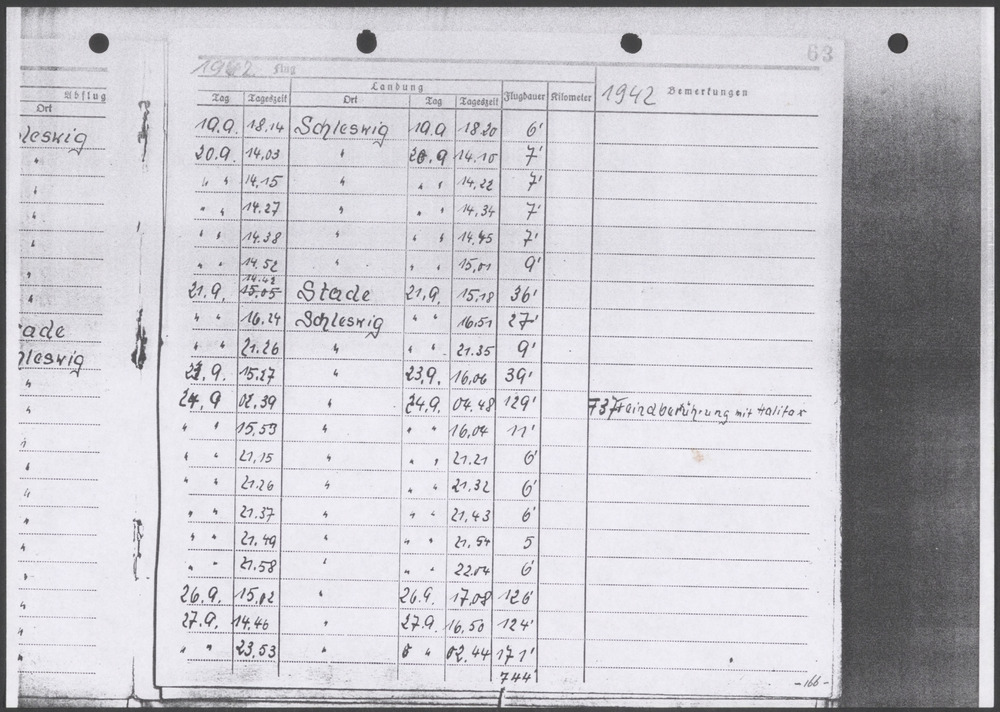 63
1942 Flug
Abflug
Landung
Flugdauer Kilometer 1942 Bemerkungen
Ort
Tag Tageszeit Ort Tag Tageszeit
leswig 19.9. 18.14 Schleswig 19.9 18.20 6'
" 20.9. 14.03 " 20.9 14.10 7'
" " " 14.15 " " " 14.22 7'
" " " 14.27 " " " 14.34 7'
" " " 14.38 " " " 14.45 7'
" " " 14.52 " " " 15.01 9'
14.42
" 21.9. 15.05 Stade 21.9. 15.18 36'
ade " " 16.24 Schleswig " " 16.51 27'
hleswig " " 21.26 " " " 21.35 9'
" 23.9. 15.27 " 23.9. 16.06 39'
" 24.9 02.39 " 24.9. 04.48 129' F37 Feindberührung mit Halifax
" " " 15.53 " " " 16.04 11'
" " " 21.15 " " " 21.21 6'
" " " 21.26 " " " 21.32 6'
" " " 21.37 " " " 21.43 6'
" " " 21.49 " " " 21.54 5
" " " 21.58 " " " 22.04 6'
" 26.9. 15.02 " 26.9. 17.08 126'
" 27.9. 14.46 " 27.9. 16.50 124'
" " " 23.53 " " 02.44 171'
744'
- 166 -